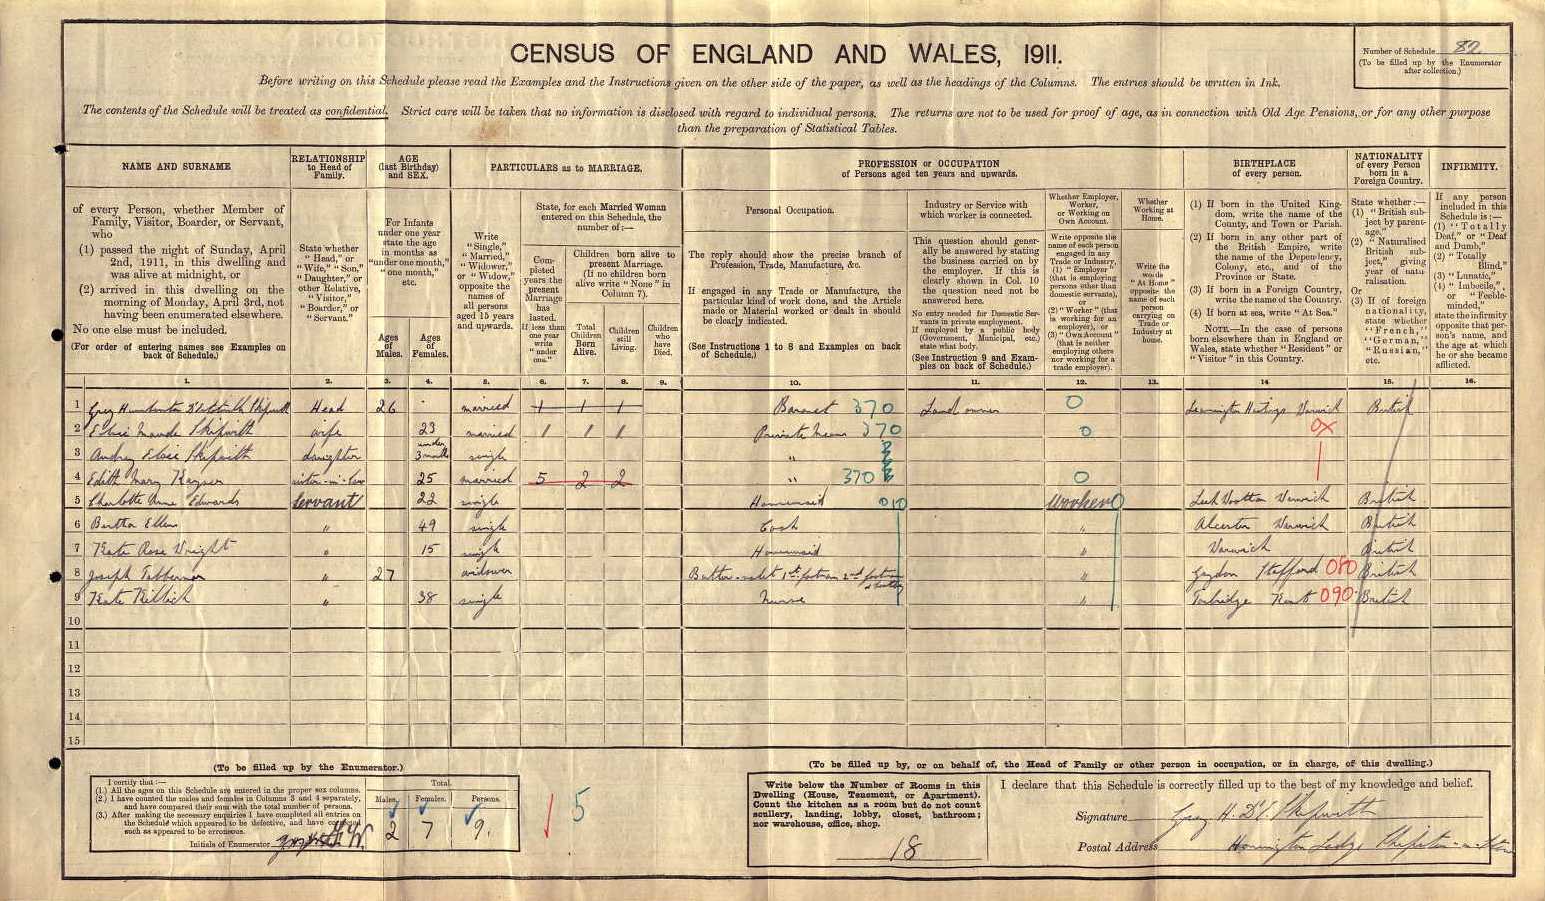 CENSUS OF ENGLAND AND WALES, 1911.
Number of Schedule 82
(To be filled up by the Enumerator after collection.)
Before writing on this Schedule please read the Examples and the Instructions given on the other side of the paper, as well as the headings of the Columns. The entries should be written in Ink.
The contents of the Schedule will be treated as confidential. Strict care will be taken that no information is disclosed with regard to individual persons. The returns are not to be used for proof of age, as in connection with Old Age Pensions, or for any other purpose
than the preparation of Statistical Tables.
NAME AND SURNAME
of every Person, whether Member of
Family, Visitor, Boarder, or Servant,
who
(1) passed the night of Sunday, April
2nd, 1911, in this dwelling and
was alive at midnight, or
(2) arrived in this dwelling on the
morning of Monday, April 3rd, not
having been enumerated elsewhere.
No one else must be included.
(For order of entering names see Examples on
back of Schedule.)
RELATIONSHIP
to Head of
Family.
State whether
"Head," or
"Wife," "Son,"
"Daughter," or
other Relative,
"Visitor,"
"Boarder," or
"Servant."
AGE
(last Birthday)
and SEX.
For Infants
under one year
state the age
in months as
"under one month,"
"one month,"
etc.
Ages
of
Males.
Ages
of
Females.
PARTICULARS as to MARRIAGE.
Write
"Single,"
"Married,"
"Widower,"
or "Widow,"
opposite the
names of
all persons
aged 15 years
and upwards.
State, for each Married Woman
entered on this Schedule, the
number of:—
Completed
years the
present
Marriage
has
lasted.
If less than
one year
write
"under
one."
Children born alive to
present Marriage.
(If no children born
alive write "None" in
Column 7).
Total
Children
Born
Alive.
Children
still
Living.
Children
who
have
Died.
PROFESSION or OCCUPATION
of Persons aged ten years and upwards.
Personal Occupation.
The reply should show the precise branch of
Profession, Trade, Manufacture, &c.
If engaged in any Trade or Manufacture, the
particular kind of work done, and the Article
made or Material worked or dealt in should
be clearly indicated.
(See Instructions 1 to 8 and Examples on back
of Schedule.)
Industry or Service with
which worker is connected.
This question should gener-
ally be answered by stating
the business carried on by
the employer. If this is
clearly shown in Col. 10
the question need not be
answered here.
No entry needed for Domestic Ser-
vants in private employment.
If employed by a public body
(Government, Municipal, etc.)
state what body.
(See Instruction 9 and Exam-
ples on back of Schedule.)
Whether Employer,
Worker,
or Working on
Own Account.
Write opposite the
name of each person
engaged in any
Trade or Industry,
(1) "Employer"
(that is employing
persons other than
domestic servants),
or
(2) "Worker" (that
is working for an
employer), or
(3) "Own Account"
(that is neither
employing others
nor working for a
trade employer).
Whether
Working at
Home.
Write the
words
"At Home"
opposite the
name of each
person
carrying on
Trade or
Industry at
home.
BIRTHPLACE
of every person.
(1) If born in the United King-
dom, write the name of the
County, and Town or Parish.
(2) If born in any other part of
the British Empire, write
the name of the Dependency,
Colony, etc., and of the
Province or State.
(3) If born in a Foreign Country,
write the name of the Country.
(4) If born at sea, write "At Sea."
NOTE.—In the case of persons
born elsewhere than in England or
Wales, state whether "Resident" or
"Visitor" in this Country.
NATIONALITY
of every Person
born in a
Foreign Country.
State whether:—
(1) "British sub-
ject by parent-
age."
(2) "Naturalised
British sub-
ject," giving
year of natu-
ralisation.
Or
(3) If of foreign
nationality,
state whether
"French,"
"German,"
"Russian,"
etc.
INFIRMITY.
If any person
included in this
Schedule is:—
(1) "Totally
Deaf," or "Deaf
and Dumb,"
(2) "Totally
Blind,"
(3) "Lunatic,"
(4) "Imbecile,"
or "Feeble-
minded,"
state the infirmity
opposite that per-
son's name, and
the age at which
he or she became
afflicted.
1. 2. 3. 4. 5. 6. 7. 8. 9. 10. 11. 12. 13. 14 15. 16.
1 Grey Humberston D'Estoteville Skipwith Head 26 married 1 1 1 Baronet 370 Land owner 0 Leamington Hastings Warwick British
2 Elsie Maude Skipwith wife 23 married 1 1 1 Private Means 370 0 0X
3 Audrey Elsie Skipwith daughter under 3 months single "
4 Edith Mary sister-in-law 25 married 5 2 2 " 370 0
5 Charlotte Anne Edwards Servant 22 single Housemaid 010 Worker 0 Leek Wootton Warwick British
6 Bertha Ellen " 49 single Cook " Alcester Warwick British
7 Kate Rose Wright " 15 single Housemaid " Warwick British
8 Joseph " 27 widower Butler-valet 1st footman 2nd footman " Stafford 080 British
9 Kate " 38 single Nurse " Tonbridge Kent 090 British
10
11
12
13
14
15
(To be filled up by the Enumerator.)
I certify that:—
(1.) All the ages on this Schedule are entered in the proper sex columns.
(2.) I have counted the males and females in Columns 3 and 4 separately,
and have compared their sum with the total number of persons.
(3.) After making the necessary enquiries I have completed all entries on
the Schedule which appeared to be defective, and have corrected
such as appeared to be erroneous.
Initials of Enumerator
Total.
Males. Females. Persons.
2 7 9.
15
(To be filled up by, or on behalf of, the Head of Family or other person in occupation, or in charge, of this dwelling.)
Write below the Number of Rooms in this
Dwelling (House, Tenement, or Apartment).
Count the kitchen as a room but do not count
scullery, landing, lobby, closet, bathroom;
nor warehouse, office, shop.
18
I declare that this Schedule is correctly filled up to the best of my knowledge and belief.
Signature Grey H. D'E. Skipwith
Postal Address Honington Lodge Shipston-on-Stour